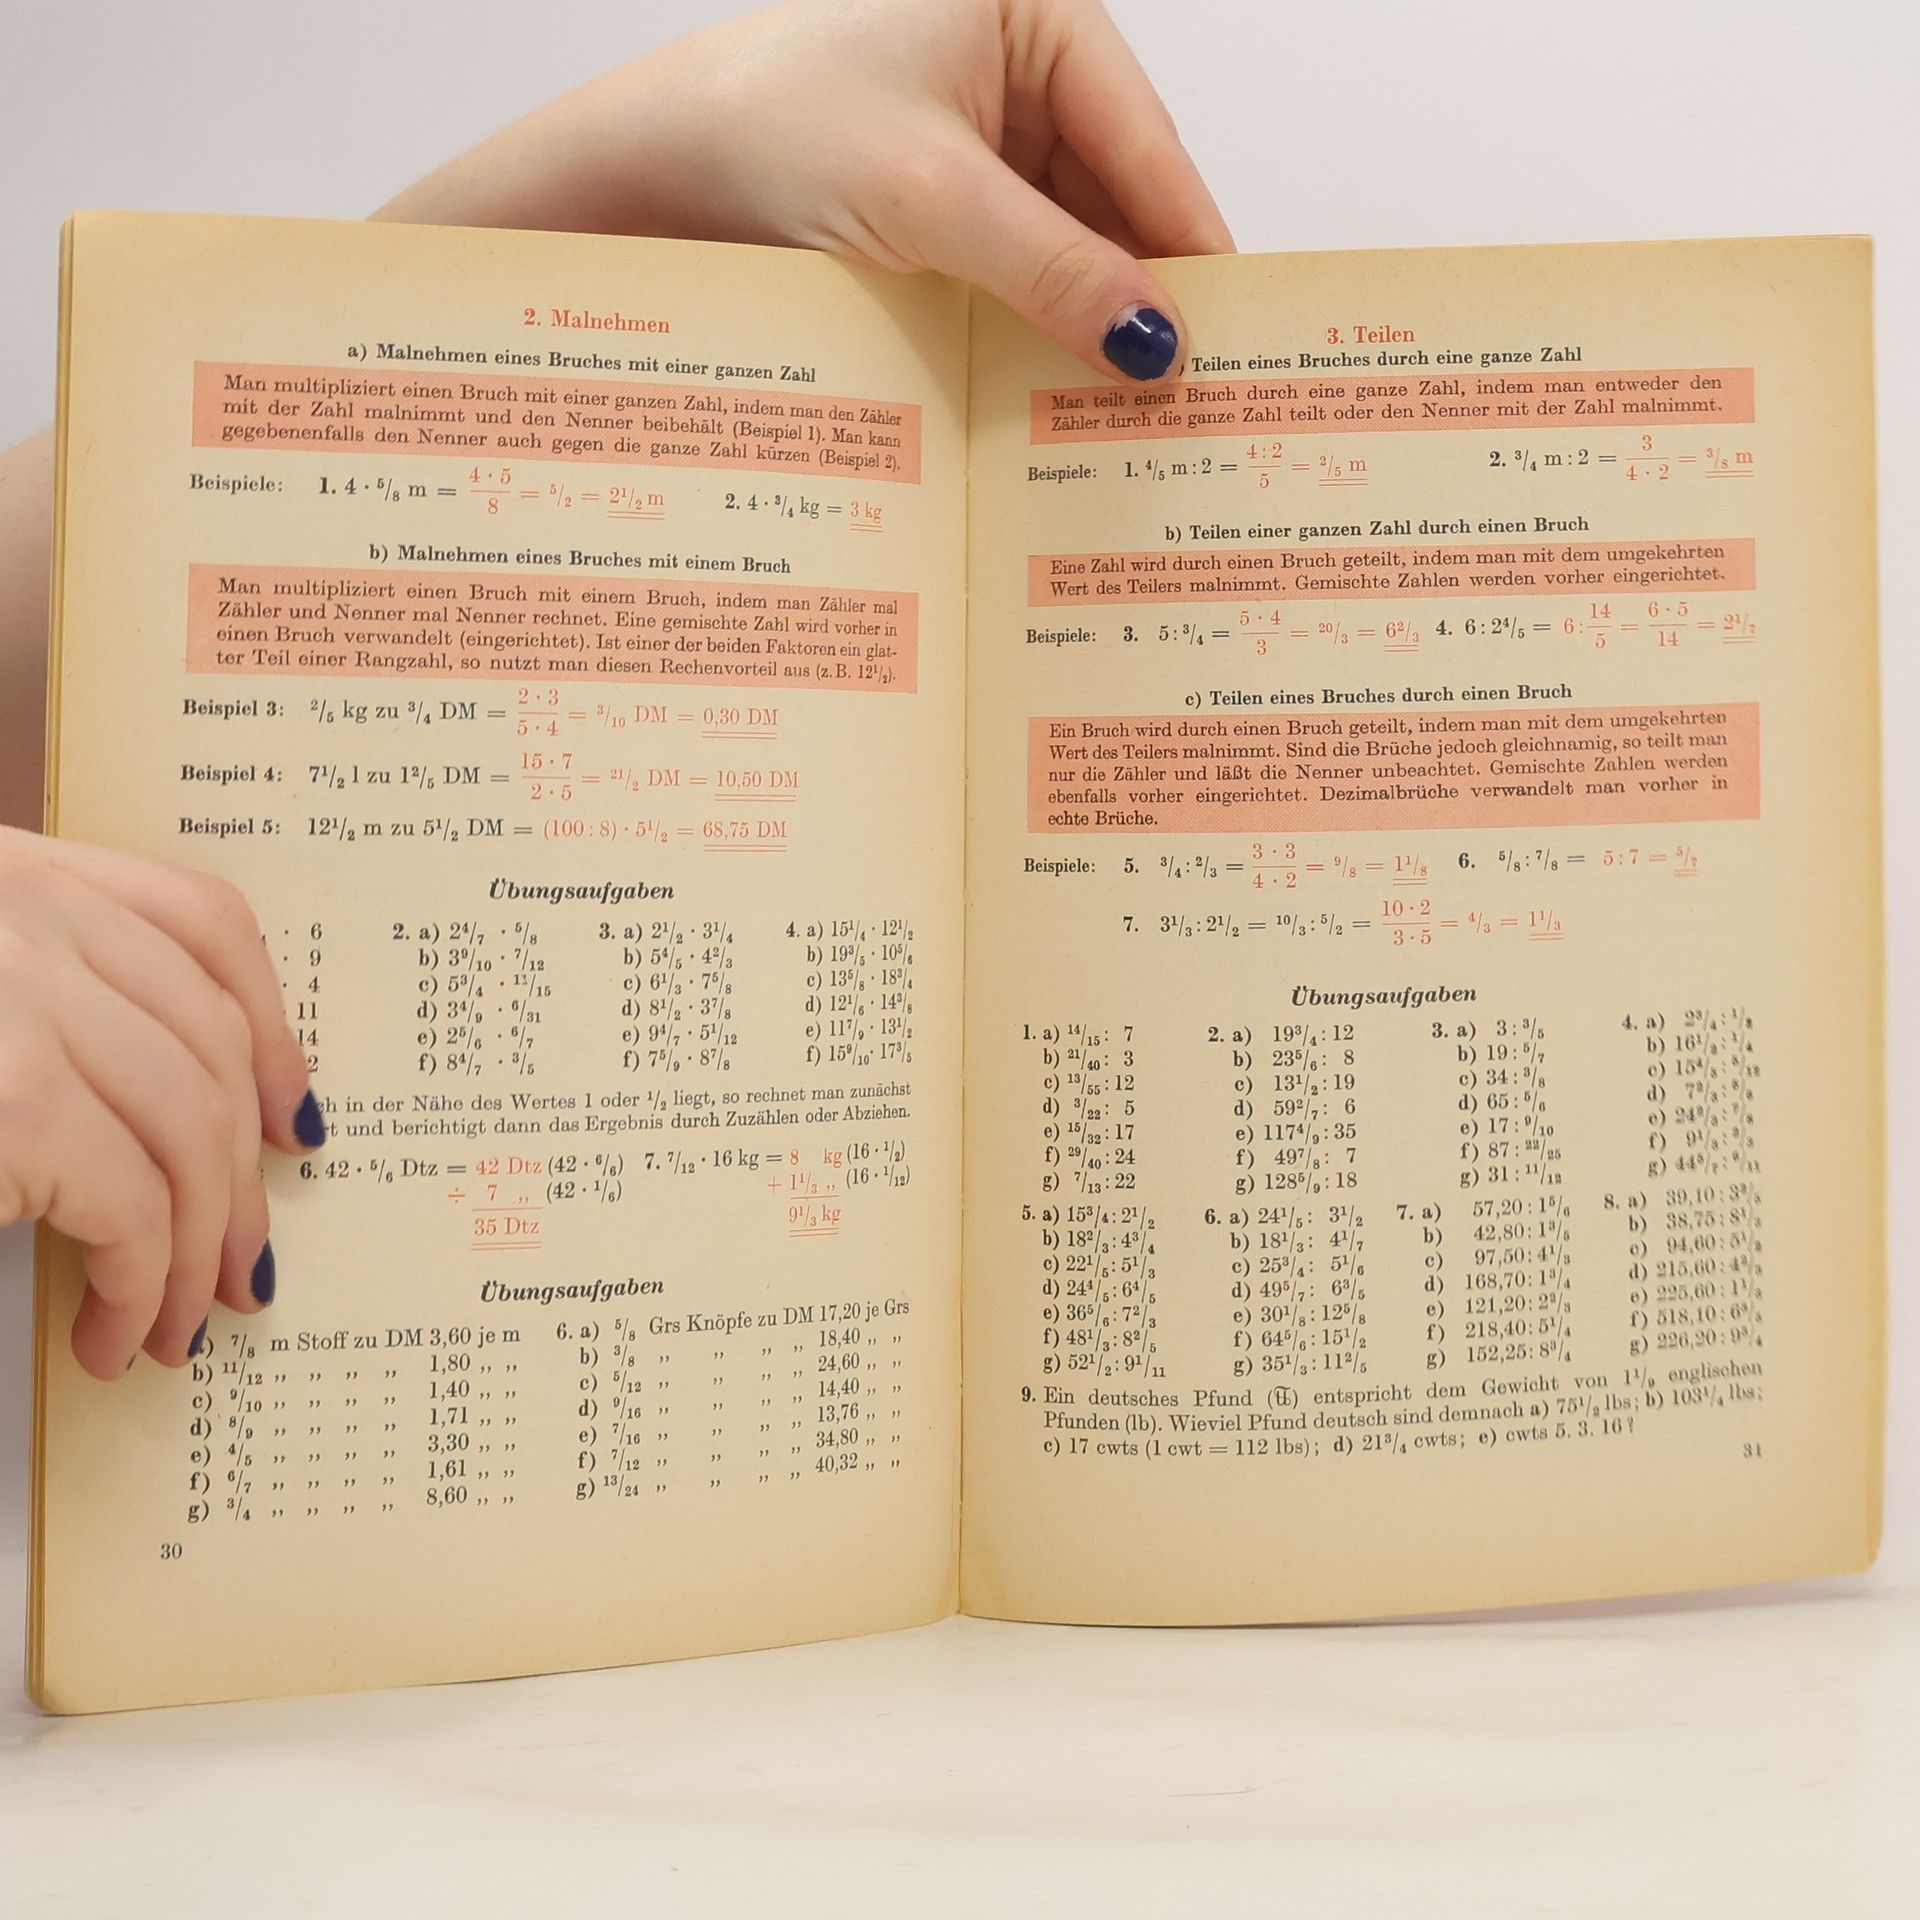 2. Malnehmen
a) Malnehmen eines Bruches mit einer ganzen Zahl
Man multipliziert einen Bruch mit einer ganzen Zahl, indem man den Zähler
mit der Zahl malnimmt und den Nenner beibehält (Beispiel 1). Man kann
gegebenenfalls den Nenner auch gegen die ganze Zahl kürzen (Beispiel 2).
Beispiele: 1. 4 · 5/8 m = 4 · 5 / 8 = 5/2 = 2 1/2 m 2. 4 · 3/4 kg = 3 kg
b) Malnehmen eines Bruches mit einem Bruch
Man multipliziert einen Bruch mit einem Bruch, indem man Zähler mal
Zähler und Nenner mal Nenner rechnet. Eine gemischte Zahl wird vorher in
einen Bruch verwandelt (eingerichtet). Ist einer der beiden Faktoren ein glat-
ter Teil einer Rangzahl, so nutzt man diesen Rechenvorteil aus (z. B. 12 1/2).
Beispiel 3: 2/5 kg zu 3/4 DM = 2 · 3 / 5 · 4 = 3/10 DM = 0,30 DM
Beispiel 4: 7 1/2 l zu 1 2/5 DM = 15 · 7 / 2 · 5 = 21/2 DM = 10,50 DM
Beispiel 5: 12 1/2 m zu 5 1/2 DM = (100 : 8) · 5 1/2 = 68,75 DM
Übungsaufgaben
· 6 2. a) 2 4/7 · 5/8 3. a) 2 1/2 · 3 1/4 4. a) 15 1/4 · 12 1/2
· 9 b) 3 9/10 · 7/12 b) 5 4/5 · 4 2/3 b) 19 3/5 · 10 5/6
· 4 c) 5 3/4 · 11/15 c) 6 1/3 · 7 5/8 c) 13 5/8 · 18 3/4
· 11 d) 3 4/9 · 6/31 d) 8 1/2 · 3 7/8 d) 12 1/6 · 14 3/8
14 e) 2 5/6 · 6/7 e) 9 4/7 · 5 1/12 e) 11 7/9 · 13 1/2
2 f) 8 4/7 · 3/5 f) 7 5/9 · 8 7/8 f) 15 9/10 · 17 3/5
in der Nähe des Wertes 1 oder 1/2 liegt, so rechnet man zunächst
und berichtigt dann das Ergebnis durch Zuzählen oder Abziehen.
6. 42 · 5/6 Dtz = 42 Dtz (42 · 6/6) 7. 7/12 · 16 kg = 8 kg (16 · 1/2)
÷ 7 „ (42 · 1/6) + 1 1/3 „ (16 · 1/12)
35 Dtz 9 1/3 kg
Übungsaufgaben
) 7/8 m Stoff zu DM 3,60 je m 6. a) 5/8 Grs Knöpfe zu DM 17,20 je Grs
b) 11/12 „ „ „ „ 1,80 „ „ b) 3/8 „ „ „ „ 18,40 „ „
c) 9/10 „ „ „ „ 1,40 „ „ c) 5/12 „ „ „ „ 24,60 „ „
d) 8/9 „ „ „ „ 1,71 „ „ d) 9/16 „ „ „ „ 14,40 „ „
e) 4/5 „ „ „ „ 3,30 „ „ e) 7/16 „ „ „ „ 13,76 „ „
f) 6/7 „ „ „ „ 1,61 „ „ f) 7/12 „ „ „ „ 34,80 „ „
g) 3/4 „ „ „ „ 8,60 „ „ g) 13/24 „ „ „ „ 40,32 „ „
30
3. Teilen
) Teilen eines Bruches durch eine ganze Zahl
Man teilt einen Bruch durch eine ganze Zahl, indem man entweder den
Zähler durch die ganze Zahl teilt oder den Nenner mit der Zahl malnimmt.
Beispiele: 1. 4/5 m : 2 = 4 : 2 / 5 = 2/5 m 2. 3/4 m : 2 = 3 / 4 · 2 = 3/8 m
b) Teilen einer ganzen Zahl durch einen Bruch
Eine Zahl wird durch einen Bruch geteilt, indem man mit dem umgekehrten
Wert des Teilers malnimmt. Gemischte Zahlen werden vorher eingerichtet.
Beispiele: 3. 5 : 3/4 = 5 · 4 / 3 = 20/3 = 6 2/3 4. 6 : 2 4/5 = 6 : 14/5 = 6 · 5 / 14 = 2 1/7
c) Teilen eines Bruches durch einen Bruch
Ein Bruch wird durch einen Bruch geteilt, indem man mit dem umgekehrten
Wert des Teilers malnimmt. Sind die Brüche jedoch gleichnamig, so teilt man
nur die Zähler und läßt die Nenner unbeachtet. Gemischte Zahlen werden
ebenfalls vorher eingerichtet. Dezimalbrüche verwandelt man vorher in
echte Brüche.
Beispiele: 5. 3/4 : 2/3 = 3 · 3 / 4 · 2 = 9/8 = 1 1/8 6. 5/8 : 7/8 = 5 : 7 = 5/7
7. 3 1/3 : 2 1/2 = 10/3 : 5/2 = 10 · 2 / 3 · 5 = 4/3 = 1 1/3
Übungsaufgaben
1. a) 14/15 : 7 2. a) 19 3/4 : 12 3. a) 3 : 3/5 4. a) 2 3/4 :
b) 21/40 : 3 b) 23 5/6 : 8 b) 19 : 5/7 b) 16 1/2 : 1/4
c) 13/55 : 12 c) 13 1/2 : 19 c) 34 : 3/8 c)
d) 3/22 : 5 d) 59 2/7 : 6 d) 65 : 5/6 d)
e) 15/32 : 17 e) 117 4/9 : 35 e) 17 : 9/10 e)
f) 29/40 : 24 f) 49 7/8 : 7 f) 87 : 22/25 f)
g) 7/13 : 22 g) 128 5/9 : 18 g) 31 : 11/12 g)
5. a) 15 3/4 : 2 1/2 6. a) 24 1/5 : 3 1/2 7. a) 57,20 : 1 5/6 8. a) 39,10 :
b) 18 2/3 : 4 3/4 b) 18 1/3 : 4 1/7 b) 42,80 : 1 3/5 b) 38,75 :
c) 22 1/5 : 5 1/3 c) 25 3/4 : 5 1/6 c) 97,50 : 4 1/3 c) 94,60 :
d) 24 4/5 : 6 4/5 d) 49 5/7 : 6 3/5 d) 168,70 : 1 3/4 d) 215,60 :
e) 36 5/6 : 7 2/3 e) 30 1/8 : 12 5/8 e) 121,20 : 2 2/3 e) 225,60 :
f) 48 1/3 : 8 2/5 f) 64 5/6 : 15 1/2 f) 218,40 : 5 1/4 f) 518,10 :
g) 52 1/2 : 9 1/11 g) 35 1/3 : 11 2/5 g) 152,25 : 8 3/4 g) 226,20 :
9. Ein deutsches Pfund (℔) entspricht dem Gewicht von 1 1/9 englischen
Pfunden (lb). Wieviel Pfund deutsch sind demnach a) 75 1/2 lbs; b) 103 1/4 lbs;
c) 17 cwts (1 cwt = 112 lbs); d) 21 3/4 cwts; e) cwts 5. 3. 16?
31